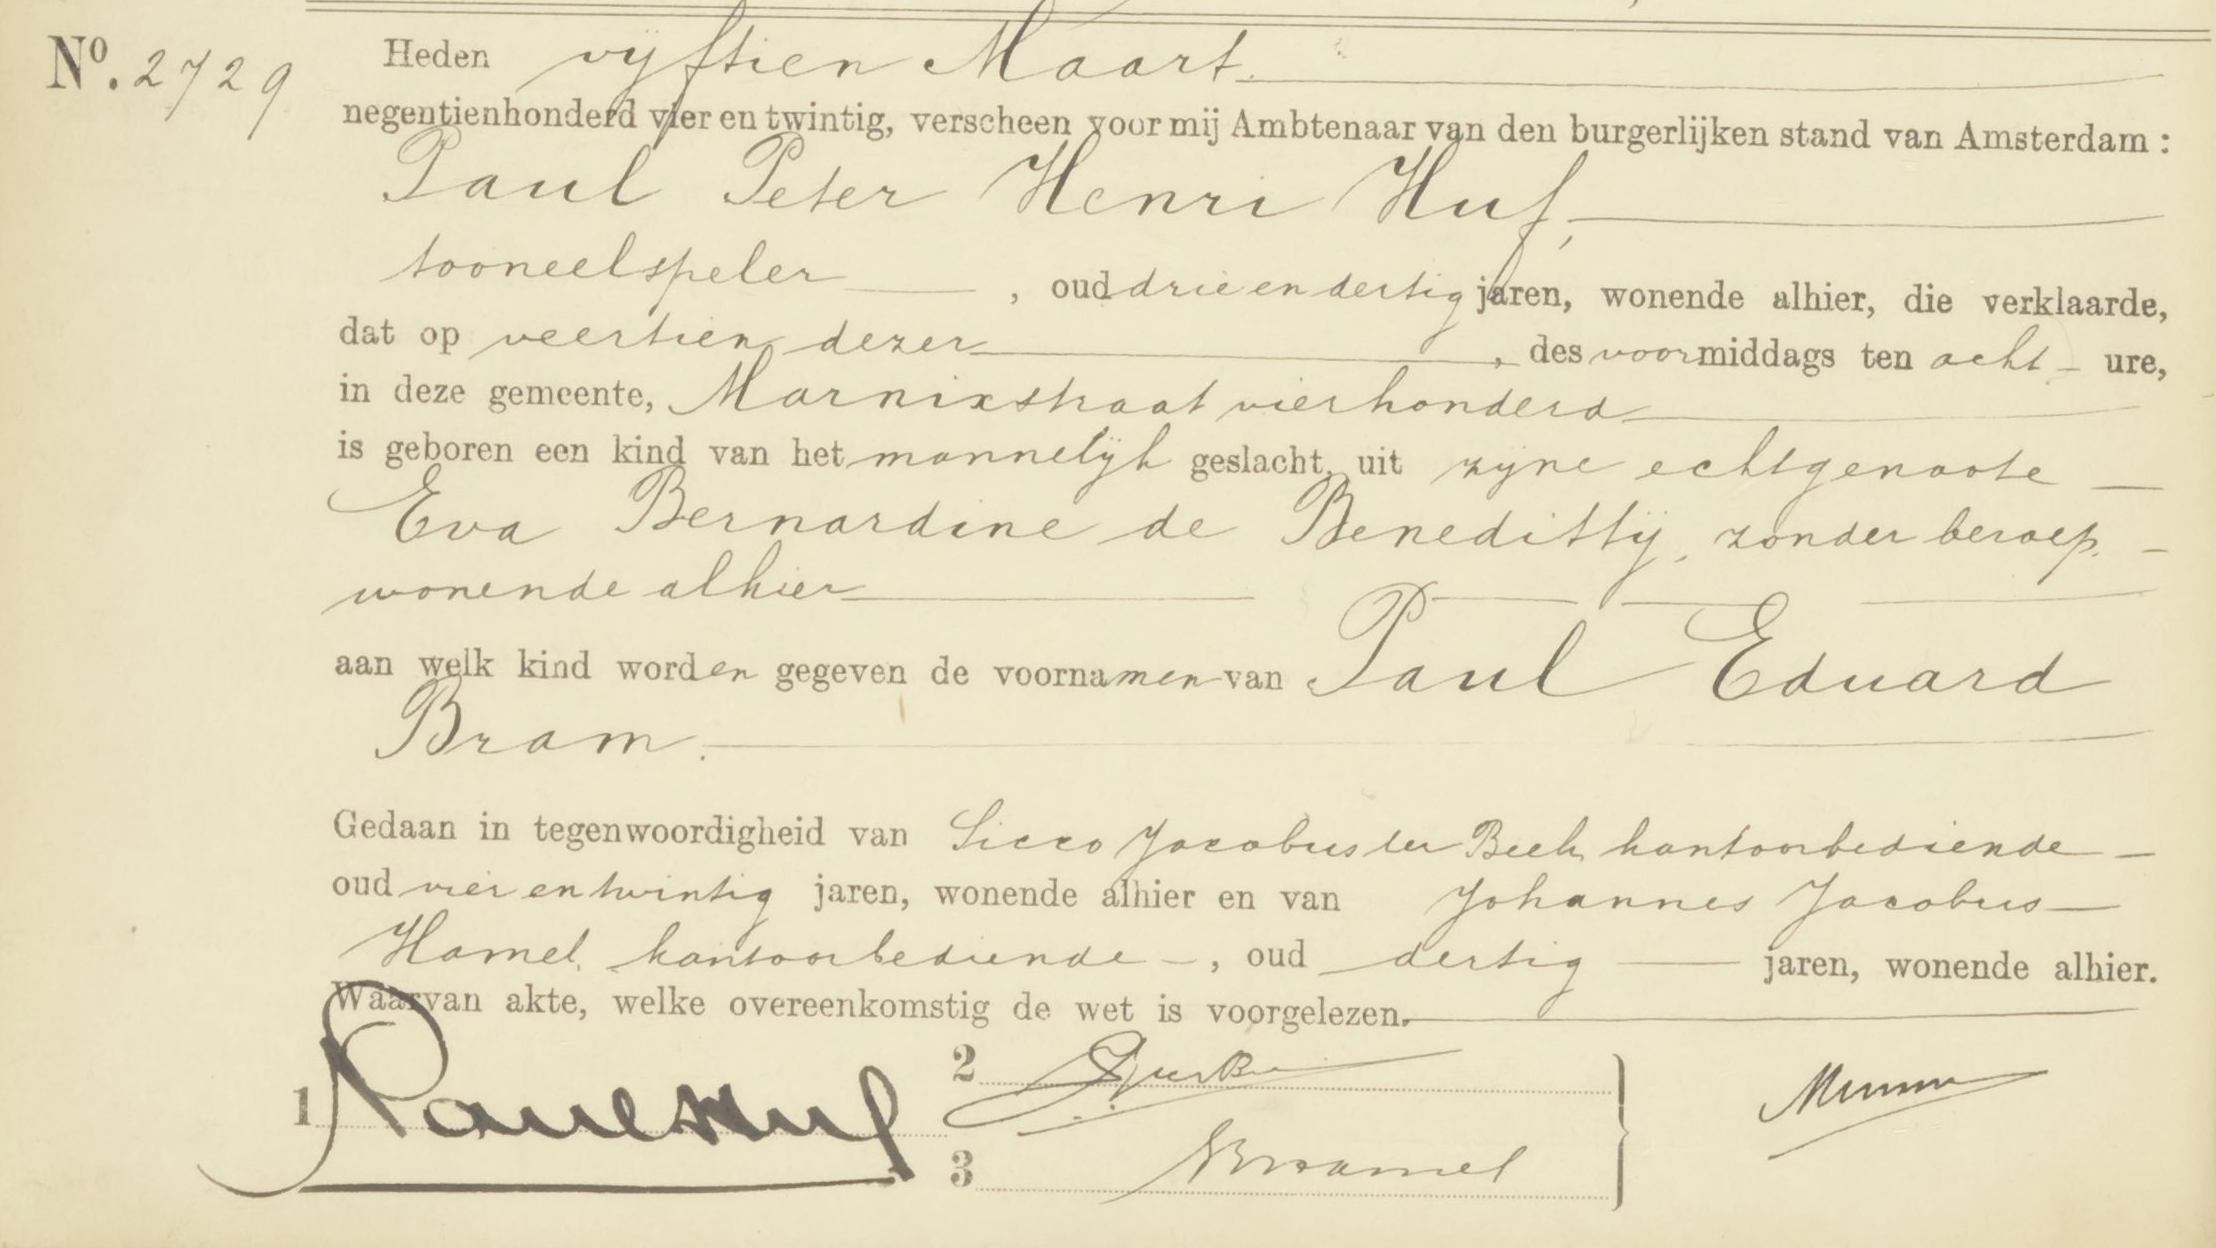 No. 2729 Heden vijftien Maart
negentienhonderd vier en twintig, verscheen voor mij Ambtenaar van den burgerlijken stand van Amsterdam :
Paul Peter Henri Huf,
tooneelspeler , oud drie en dertig jaren, wonende alhier, die verklaarde,
dat op veertien dezer , des voormiddags ten acht ure,
in deze gemeente, Marnixstraat vierhonderd
is geboren een kind van het mannelijk geslacht, uit zijne echtgenoote
Eva Bernardine de Beneditty, zonder beroep,
wonende alhier
aan welk kind worden gegeven de voornamen van Paul Eduard
Bram.
Gedaan in tegenwoordigheid van Sicco Jacobus ter Beek kantoorbediende
oud vier en twintig jaren, wonende alhier en van Johannes Jacobus
Hamel, kantoorbediende , oud dertig jaren, wonende alhier.
Waarvan akte, welke overeenkomstig de wet is voorgelezen.
1 Paul Huf
2
3 Hamel